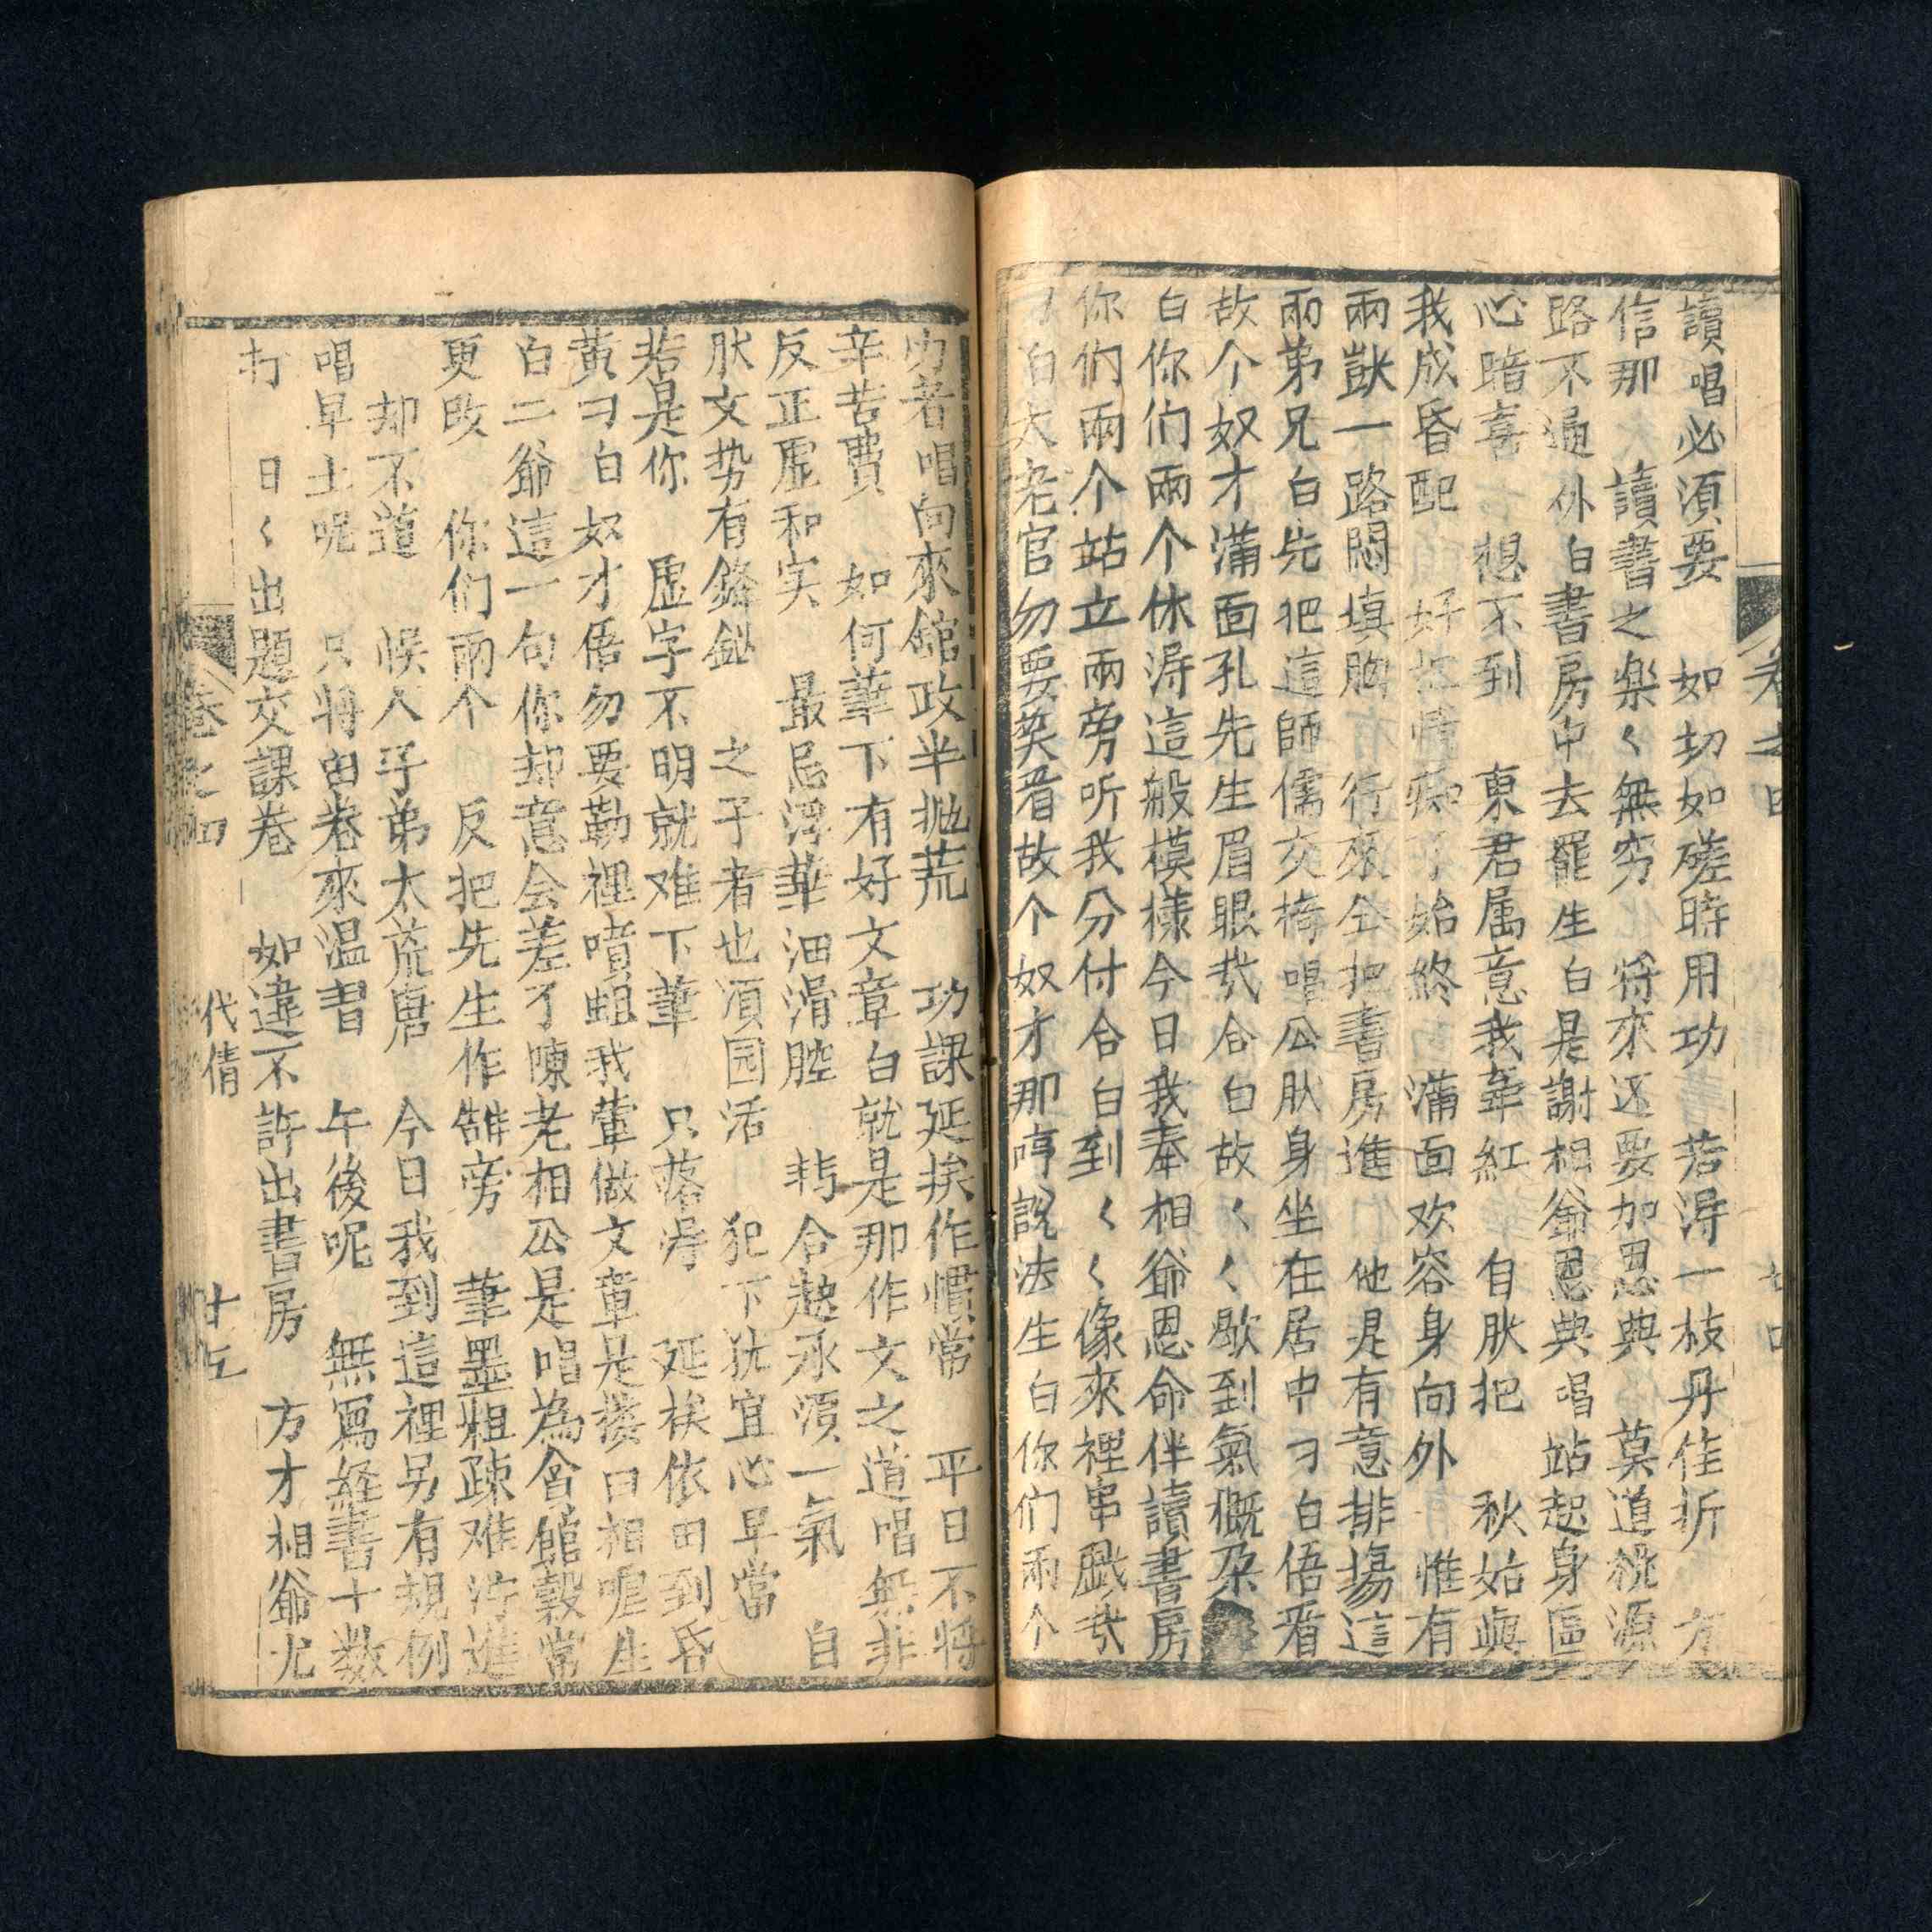 卷之四
讀唱必須要 如切如磋時用功 若淂一枝丹佳折 方
信那 讀書之楽く無穷 將來还要加恩典 莫道桃源
路不通外白書房中去罷生白是謝相爺恩典唱站起身區
心暗喜 想不到 東君属意我辈紅 自肰把 秋姑與
我成昏配 好 始終 滿面欢容身向外 惟有
兩獃一路悶填胸 行來仝把書房進 他是有意排場這
兩弟兄白先把這師儒交椅唱公肰身坐在居中刁白俉看
故个奴才滿面孔先生眉眼哉合白故くく歇到氣概朶
白你们兩个休淂這般模樣今日我奉相爺恩命伴讀書房
你们兩个站立兩旁听我分付合白到くく像來裡串戯哉
白大老官勿要笑看故个奴才那哼說法生白你们兩个
功者唱向來舘政半抛荒 功課延挨作慣常 平日不將
辛苦費 如何華下有好文章白就是那作文之道唱無非
反正虛和実 最忌浮華油滑腔 合題承湏一氣 自
肰文势有鋒鋩 之乎者也湏园活 犯下犹宜心早當
若是你 虛字不明就难下筆 只落淂 延挨依旧到昏
黄刁白奴才俉勿要勒裡噴蛆我輩做文章是搂白相唱生
白二爺這一句你却意会差了陳老相公是唱為舍館穀常
更改 你们兩个 反把先生作雠旁 筆墨粗疎难淂進
却不道 悞人子弟太荒唐 今日我到這裡另有規例
唱早上呢 只將白卷來温書 午後呢 無寫経書十数
打 日く出題交課卷 如違不許出書房 方才相爺尤
卷之四 代倩 十五